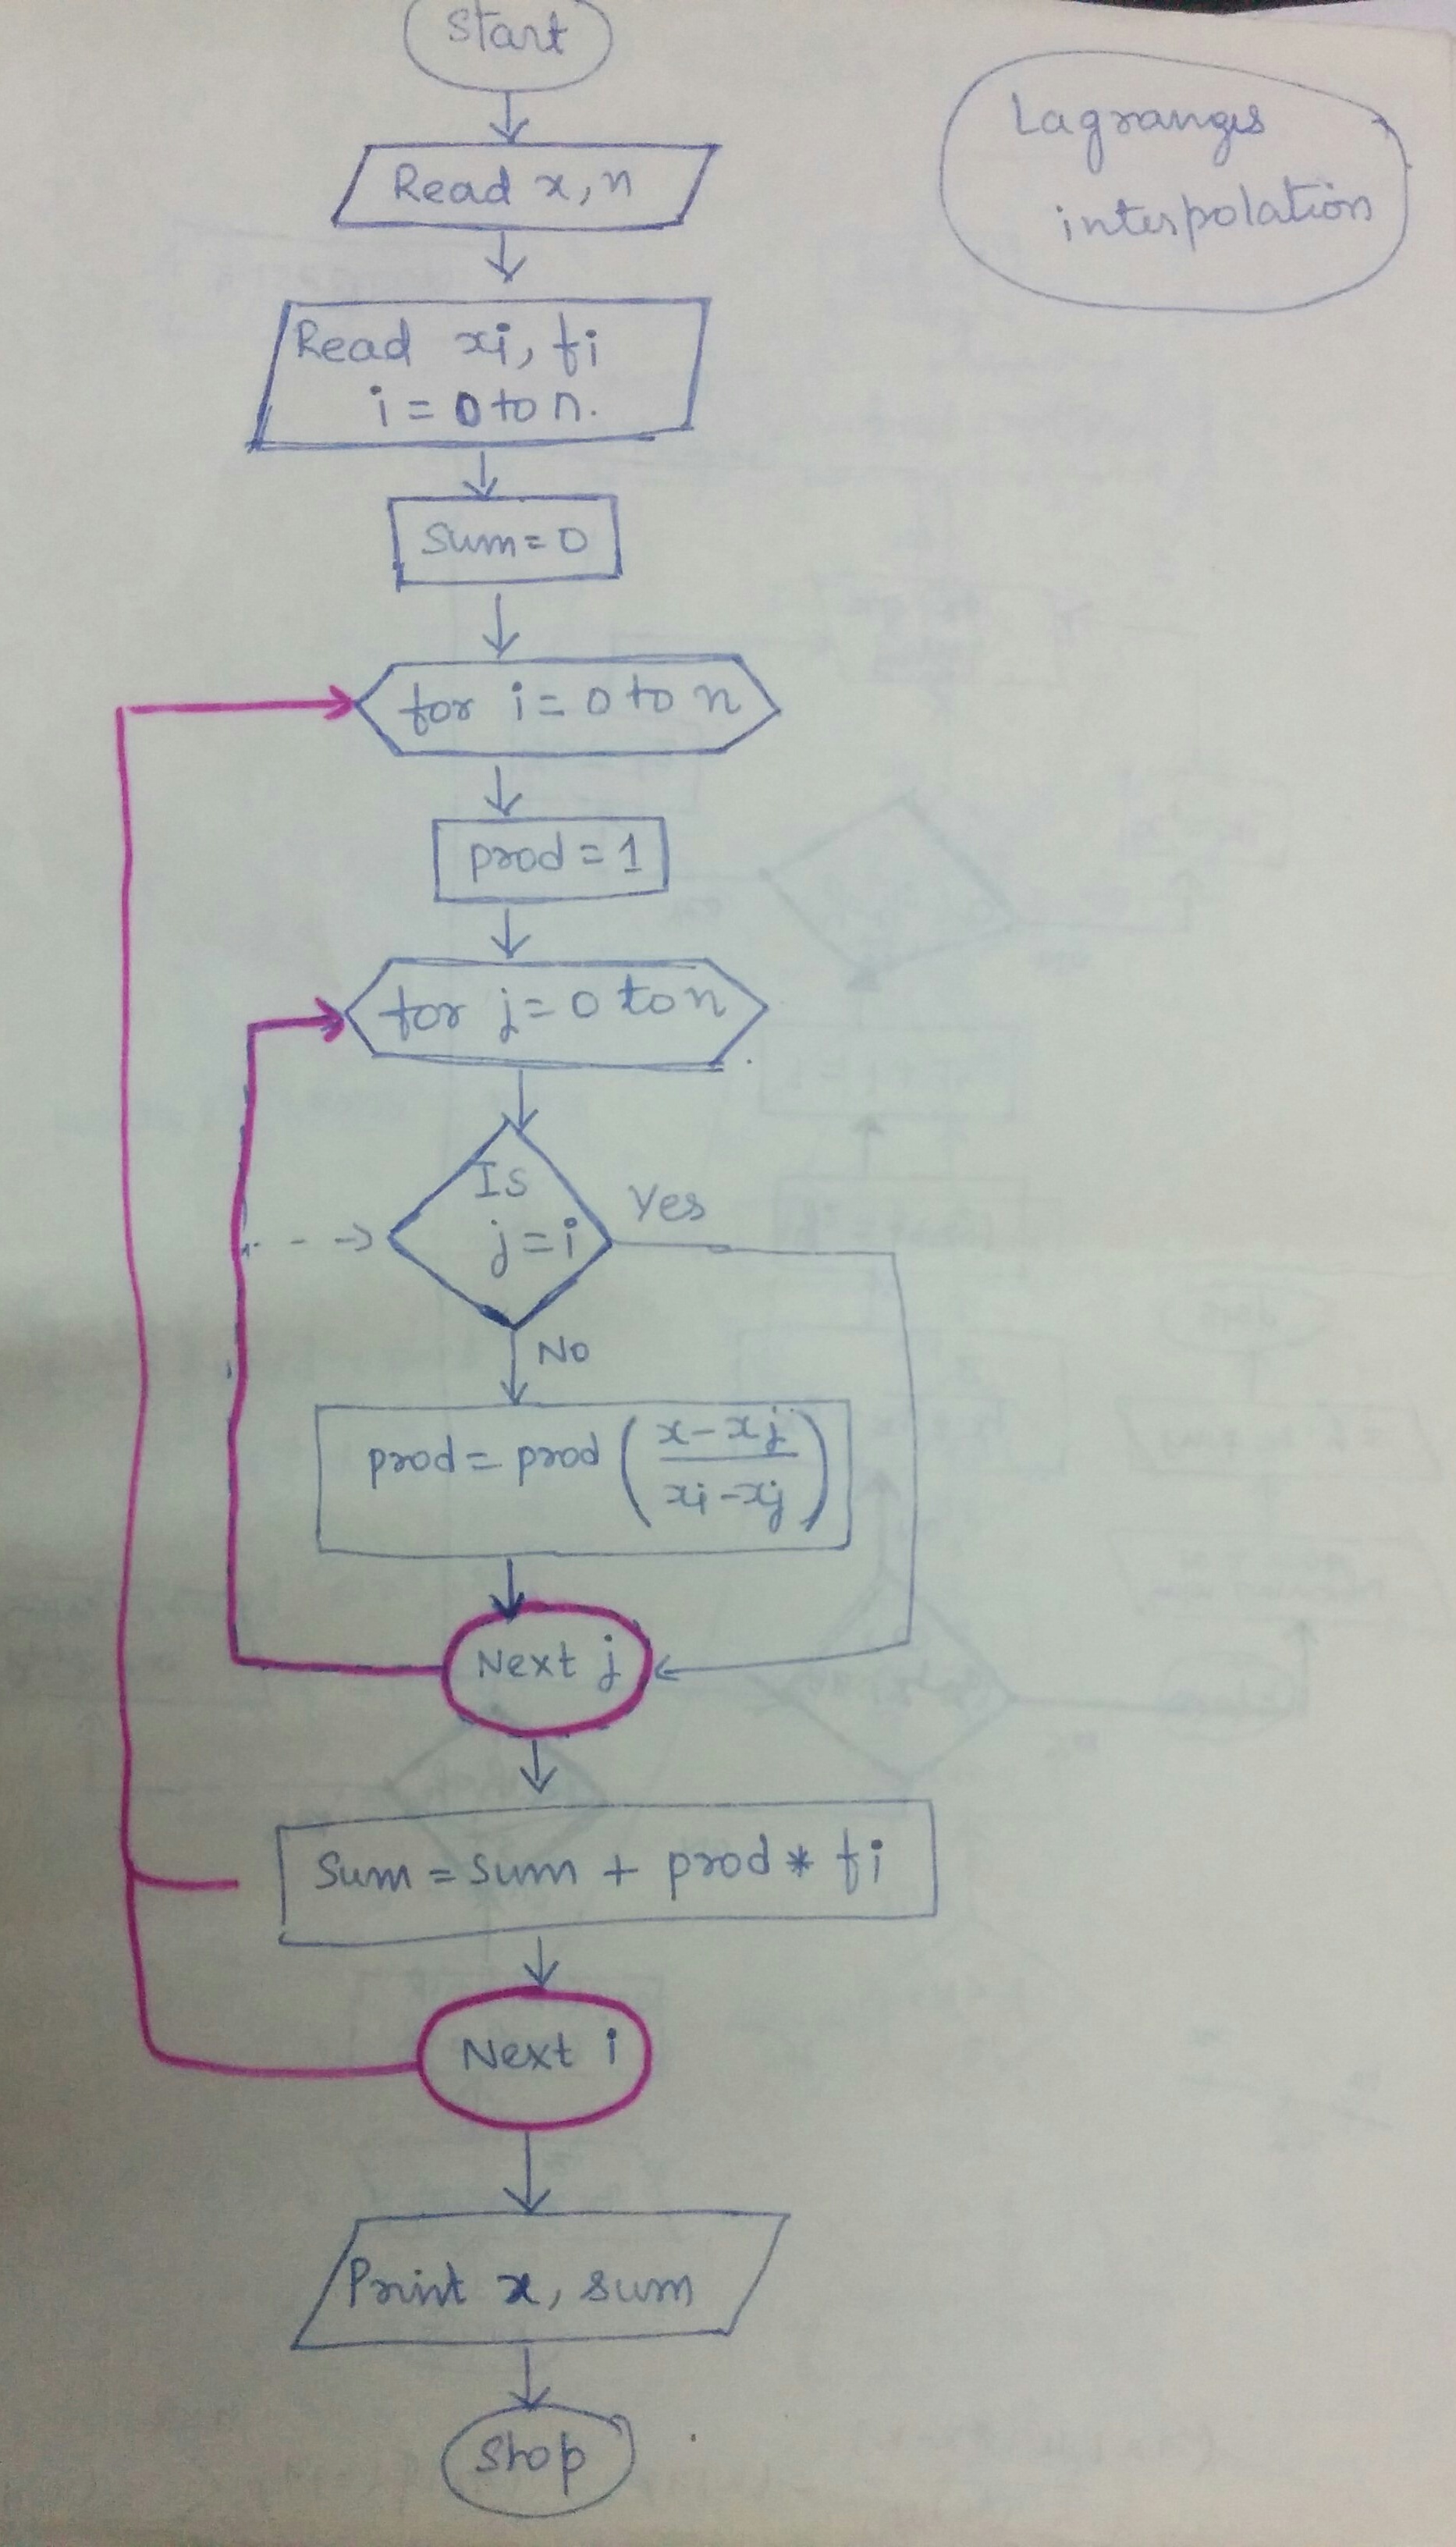 Start
Lagranges
interpolation
Read x, n
Read xi, fi
i = 0 to n.
Sum = 0
for i = 0 to n
prod = 1
for j = 0 to n
Is
j = i
Yes
No
prod = prod ( x - xj / xi - xj )
Next j
Sum = Sum + prod * fi
Next i
Print x, sum
Stop